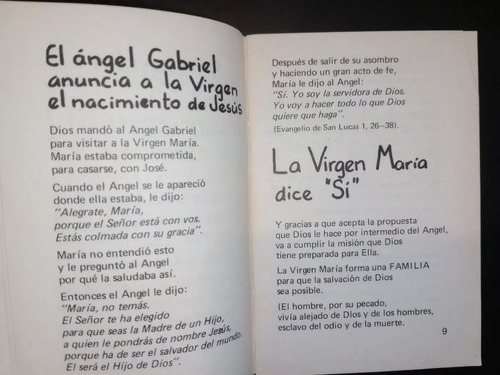 El ángel Gabriel
anuncia a la Virgen
el nacimiento de Jesús
Dios mandó al Angel Gabriel
para visitar a la Virgen María.
María estaba comprometida,
para casarse, con José.
Cuando el Angel se le apareció
donde ella estaba, le dijo:
"Alegrate, María,
porque el Señor está con vos.
Estás colmada con su gracia".
María no entendió esto
y le preguntó al Angel
por qué la saludaba así.
Entonces el Angel le dijo:
"María, no temás.
El Señor te ha elegido
para que seas la Madre de un Hijo,
a quien le pondrás de nombre Jesús,
porque ha de ser el salvador del mundo.
El será el Hijo de Dios".
Después de salir de su asombro
y haciendo un gran acto de fe,
María le dijo al Angel:
"Sí. Yo soy la servidora de Dios.
Yo voy a hacer todo lo que Dios
quiere que haga".
(Evangelio de San Lucas 1, 26-38).
La Virgen María
dice "Sí"
Y gracias a que acepta la propuesta
que Dios le hace por intermedio del Angel,
va a cumplir la misión que Dios
tiene preparada para Ella.
La Virgen María forma una FAMILIA
para que la salvación de Dios
sea posible.
(El hombre, por su pecado,
vivía alejado de Dios y de los hombres,
esclavo del odio y de la muerte.
9